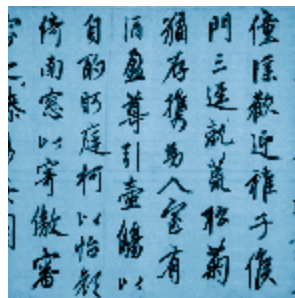 僮僕歡迎稚子候
門三逕就荒松菊
猶存攜幼入室有
酒盈尊引壺觴以
自酌眄庭柯以怡顏
倚南窓以寄傲審